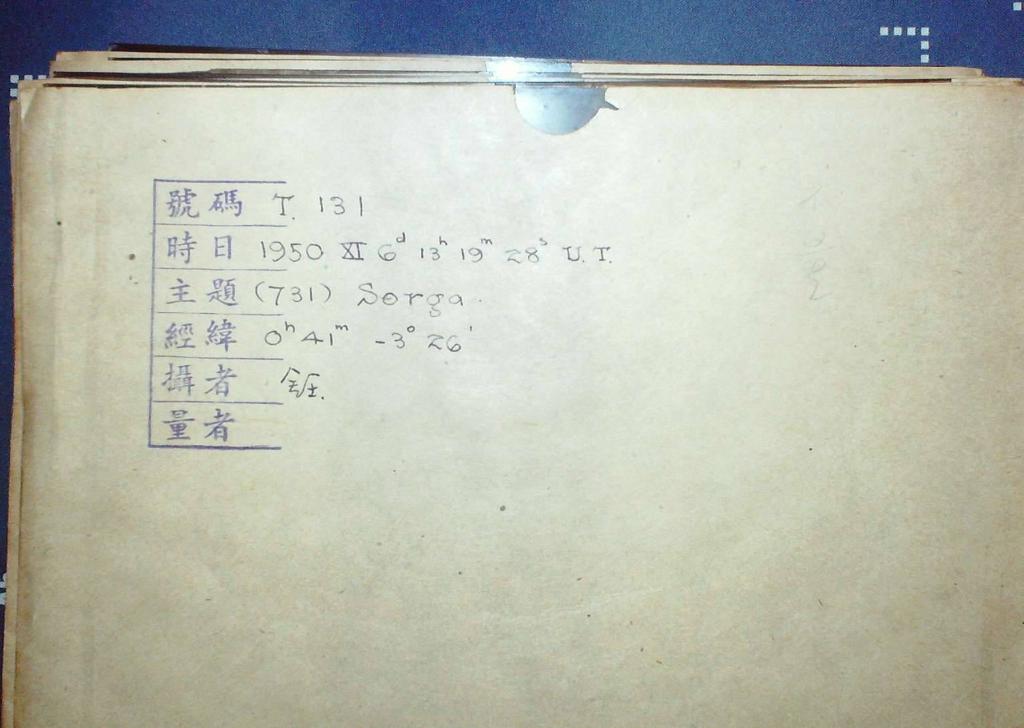 號碼 T. 131
時日 1950 XI 6ᵈ 13ʰ 19ᵐ 28ˢ U.T.
主題 (731) Sorga.
經緯 0ʰ 41ᵐ -3° 26'
攝者
量者